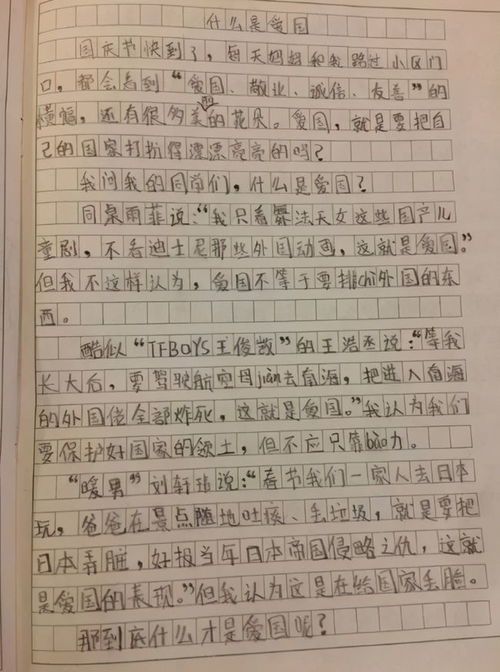 什么是爱国
国庆节快到了，每天妈妈和我路过小区门
口，都会看到“爱国、敬业、诚信、友善”的
横幅，还有很多美丽的花朵。爱国，就是要把自
己的国家打扮得漂漂亮亮的吗？
我问我的同学们，什么是爱国？
同桌雨菲说：“我只看舞法天女这些国产儿
童剧，不看迪士尼那些外国动画，这就是爱国。”
但我不这样认为，爱国不等于要排chì外国的东
西。
酷似“TFBOYS王俊凯”的王浩丞说：“等我
长大后，要驾驶航空母jiàn去南海，把进入南海
的外国佬全部炸死，这就是爱国。”我认为我们
要保护好国家的领土，但不应只靠bào力。
“暖男”刘轩 说：“春节我们一家人去日本
玩，爸爸在景点随地吐痰、丢垃圾，就是要把
日本弄脏，好报当年日本帝国侵略之仇，这就
是爱国的表现。”但我认为这是在给国家丢脸。
那到底什么才是爱国呢？